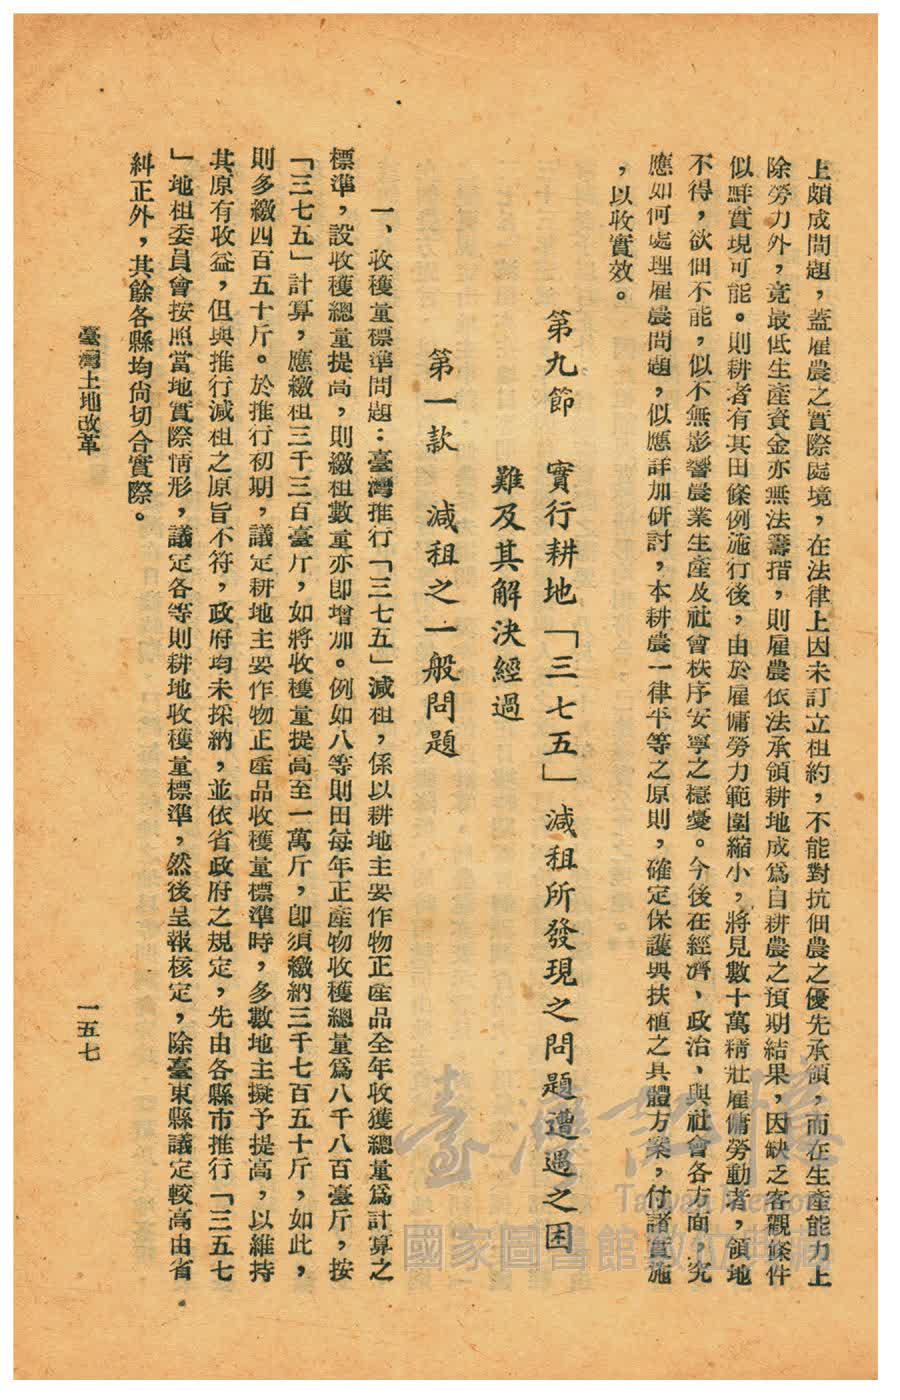 上頗成問題，蓋雇農之實際處境，在法律上因未訂立租約，不能對抗佃農之優先承領，而在生產能力上
除勞力外，竟最低生產資金亦無法籌措，則雇農依法承領耕地成為自耕農之預期結果，因缺乏客觀條件
似鮮實現可能。則耕者有其田條例施行後，由於雇傭勞力範圍縮小，將見數十萬精壯雇傭勞動者，領地
不得，欲佃不能，似不無影響農業生產及社會秩序安寧之隱憂。今後在經濟、政治、與社會各方面，究
應如何處理雇農問題，似應詳加研討，本耕農一律平等之原則，確定保護與扶植之具體方案，付諸實施
，以收實效。
第九節　實行耕地「三七五」減租所發現之問題遭遇之困
難及其解決經過
第一款　減租之一般問題
一、收穫量標準問題：臺灣推行「三七五」減租，係以耕地主要作物正產品全年收獲總量為計算之
標準，設收穫總量提高，則繳租數量亦卽增加。例如八等則田每年正產物收穫總量為八千八百臺斤，按
「三七五」計算，應繳租三千三百臺斤，如將收穫量提高至一萬斤，卽須繳納三千七百五十斤，如此，
則多繳四百五十斤。於推行初期，議定耕地主要作物正產品收穫量標準時，多數地主擬予提高，以維持
其原有收益，但與推行減租之原旨不符，政府均未採納，並依省政府之規定，先由各縣市推行「三五七
」地租委員會按照當地實際情形，議定各等則耕地收穫量標準，然後呈報核定，除臺東縣議定較高由省
糾正外，其餘各縣均尚切合實際。
臺灣土地改革
一五七
臺灣記憶
Taiwan Memory
國家圖書館數位典藏